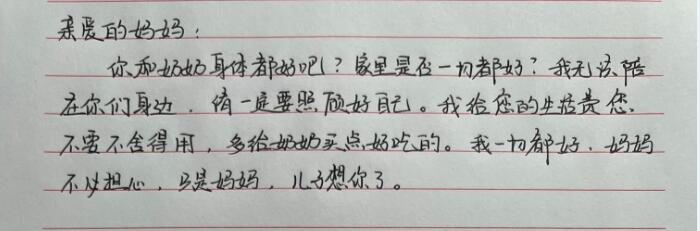 亲爱的妈妈：
你和奶奶身体都好吧？家里是否一切都好？我无法陪
在你们身边，请一定要照顾好自己。我给您的生活费您
不要不舍得用，多给奶奶买点好吃的。我一切都好，妈妈
不必担心，只是妈妈，儿子想你了。